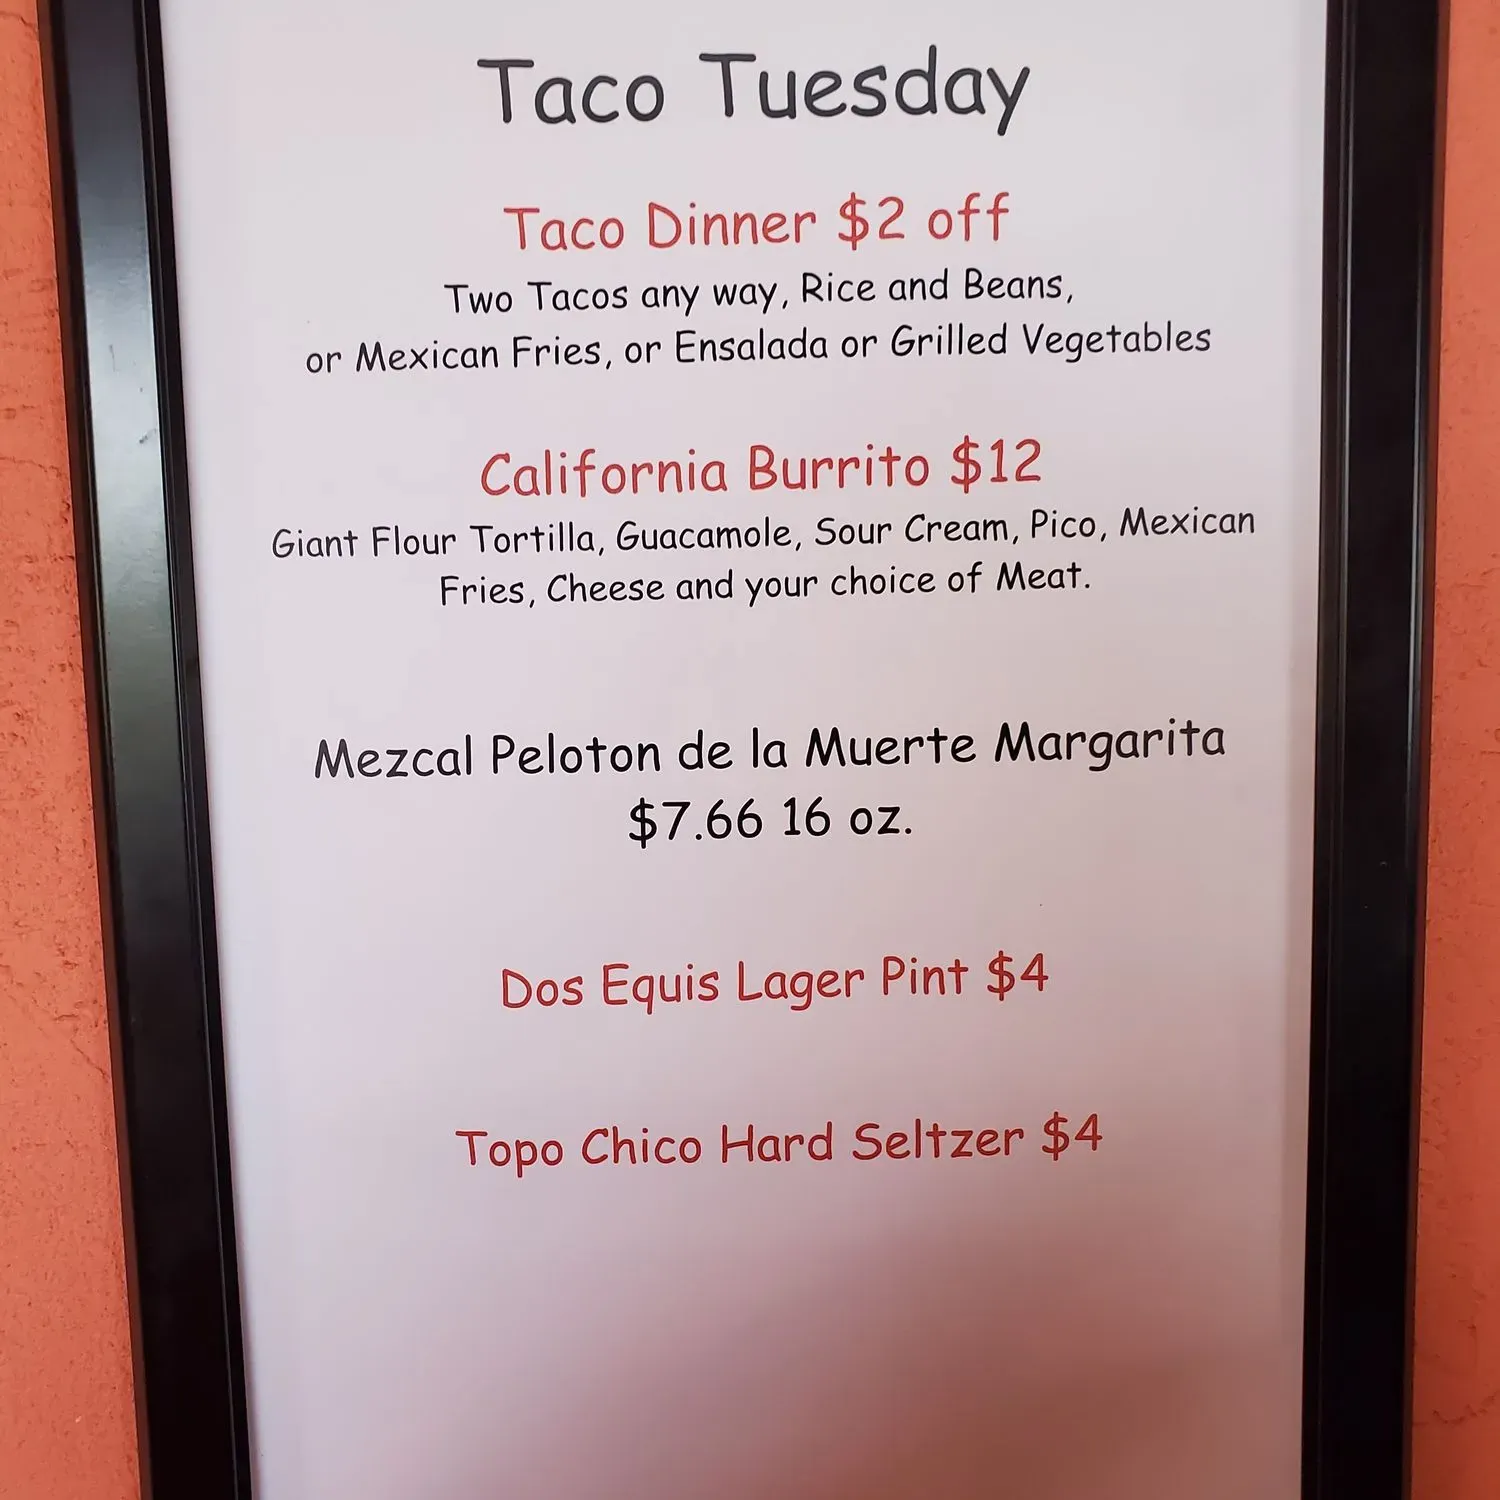 Taco Tuesday
Taco Dinner $2 off
Two Tacos any way, Rice and Beans,
or Mexican Fries, or Ensalada or Grilled Vegetables
California Burrito $12
Giant Flour Tortilla, Guacamole, Sour Cream, Pico, Mexican
Fries, Cheese and your choice of Meat.
Mezcal Peloton de la Muerte Margarita
$7.66 16 oz.
Dos Equis Lager Pint $4
Topo Chico Hard Seltzer $4